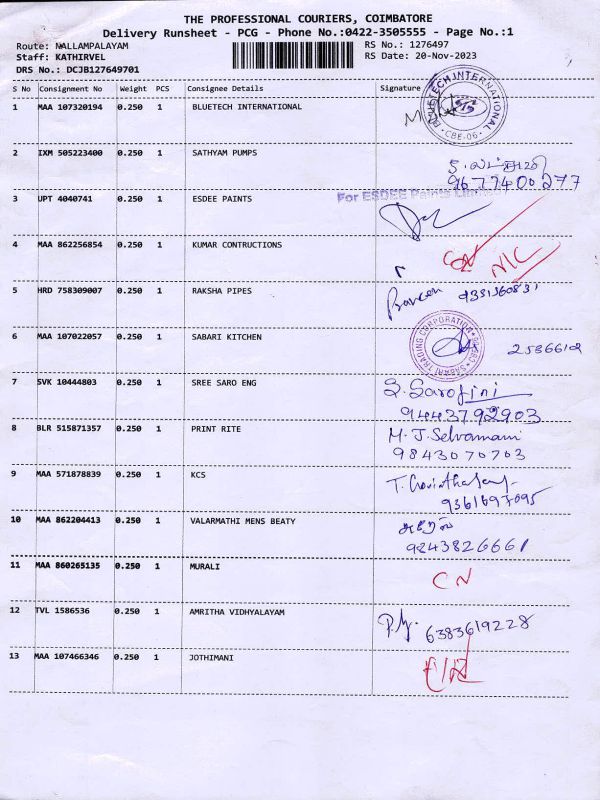 THE PROFESSIONAL COURIERS, COIMBATORE
Delivery Runsheet - PCG - Phone No.:0422-3505555 - Page No.:1
Route: NALLAMPALAYAM
RS No.: 1276497
Staff: KATHIRVEL
RS Date: 20-Nov-2023
DRS No.: DCJB127649701
S No Consignment No Weight PCS Consignee Details Signature
1 MAA 107320194 0.250 1 BLUETECH INTERNATIONAL
BLUETECH INTERNATIONAL CBE-06.
2 IXM 505223400 0.250 1 SATHYAM PUMPS
9677400277
3 UPT 4040741 0.250 1 ESDEE PAINTS
For ESDEE Paints Limited
4 MAA 862256854 0.250 1 KUMAR CONTRUCTIONS
CN N/C
5 HRD 758309007 0.250 1 RAKSHA PIPES
Praveen
6 MAA 107022057 0.250 1 SABARI KITCHEN
SABARI TRADING CORPORATION
2536612
7 SVK 10444803 0.250 1 SREE SARO ENG
S. Sarojini
9443792903
8 BLR 515871357 0.250 1 PRINT RITE
M. J. Selvamani
9843070703
9 MAA 571878839 0.250 1 KCS
10 MAA 862204413 0.250 1 VALARMATHI MENS BEATY
9243826661
11 MAA 860265135 0.250 1 MURALI
CN
12 TVL 1586536 0.250 1 AMRITHA VIDHYALAYAM
6383619228
13 MAA 107466346 0.250 1 JOTHIMANI